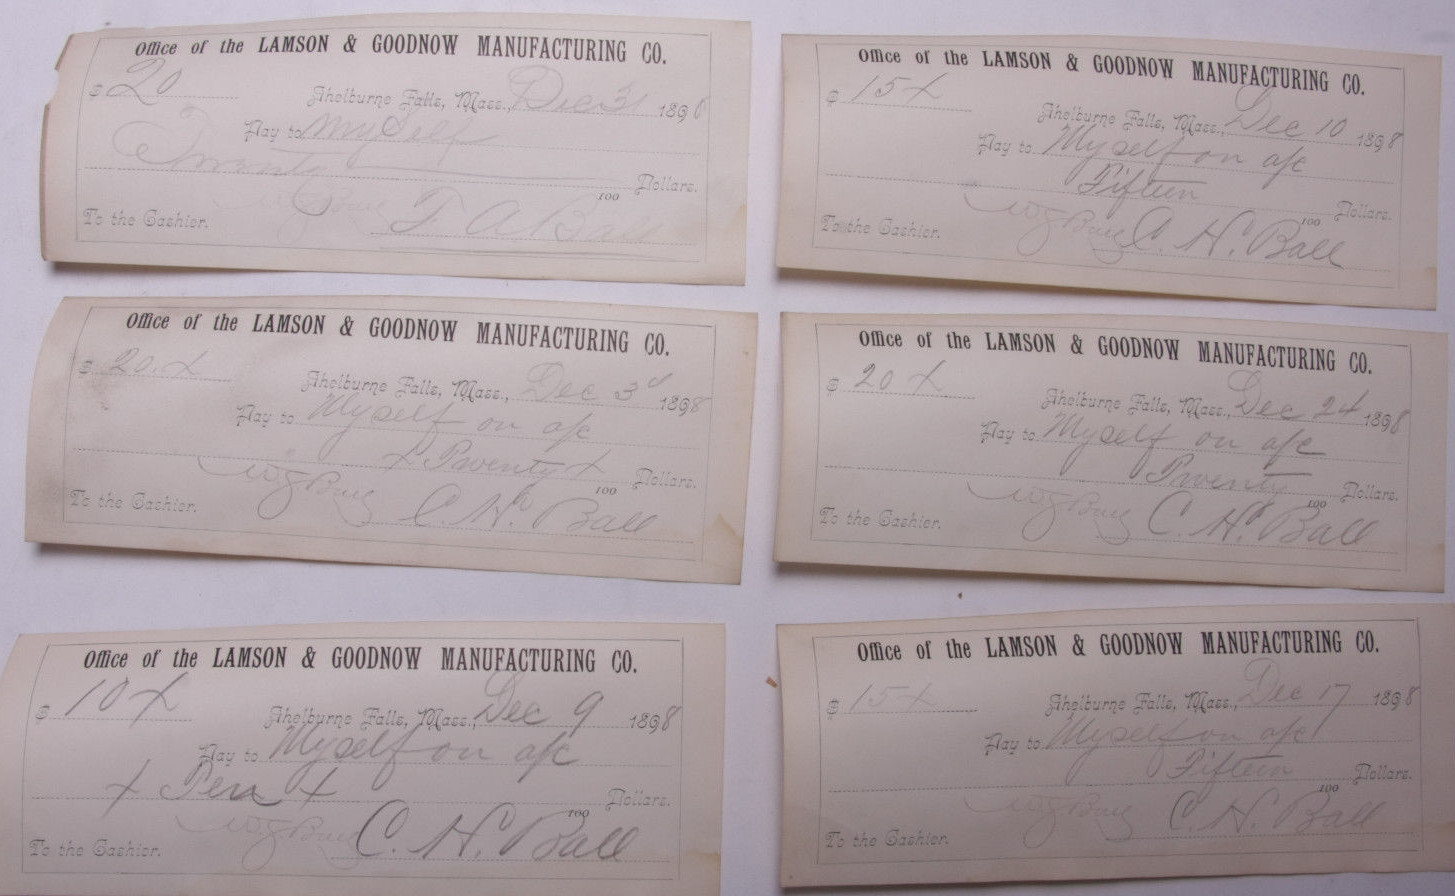 Office of the LAMSON & GOODNOW MANUFACTURING CO.
$ 20
Shelburne Falls, Mass., Dec 31 189
Pay to Myself
Twenty
100 Dollars.
To the Cashier. F A Ball
Office of the LAMSON & GOODNOW MANUFACTURING CO.
$ 15 X
Shelburne Falls, Mass., Dec 10 1898
Pay to Myself on a/c
Fifteen
100 Dollars.
To the Cashier. C. H. Ball
Office of the LAMSON & GOODNOW MANUFACTURING CO.
$ 20 X
Shelburne Falls, Mass., Dec 3d 1898
Pay to Myself on a/c
X Twenty X
100 Dollars.
To the Cashier. C. H. Ball
Office of the LAMSON & GOODNOW MANUFACTURING CO.
$ 20 X
Shelburne Falls, Mass., Dec 24 1898
Pay to Myself on a/c
Twenty
100 Dollars.
To the Cashier. C. H. Ball
Office of the LAMSON & GOODNOW MANUFACTURING CO.
$ 10 X
Shelburne Falls, Mass., Dec 9 1898
Pay to Myself on a/c
X Ten X
100 Dollars.
To the Cashier. C. H. Ball
Office of the LAMSON & GOODNOW MANUFACTURING CO.
$ 15 X
Shelburne Falls, Mass., Dec 17 1898
Pay to Myself on a/c
Fifteen
100 Dollars.
To the Cashier. C. H. Ball